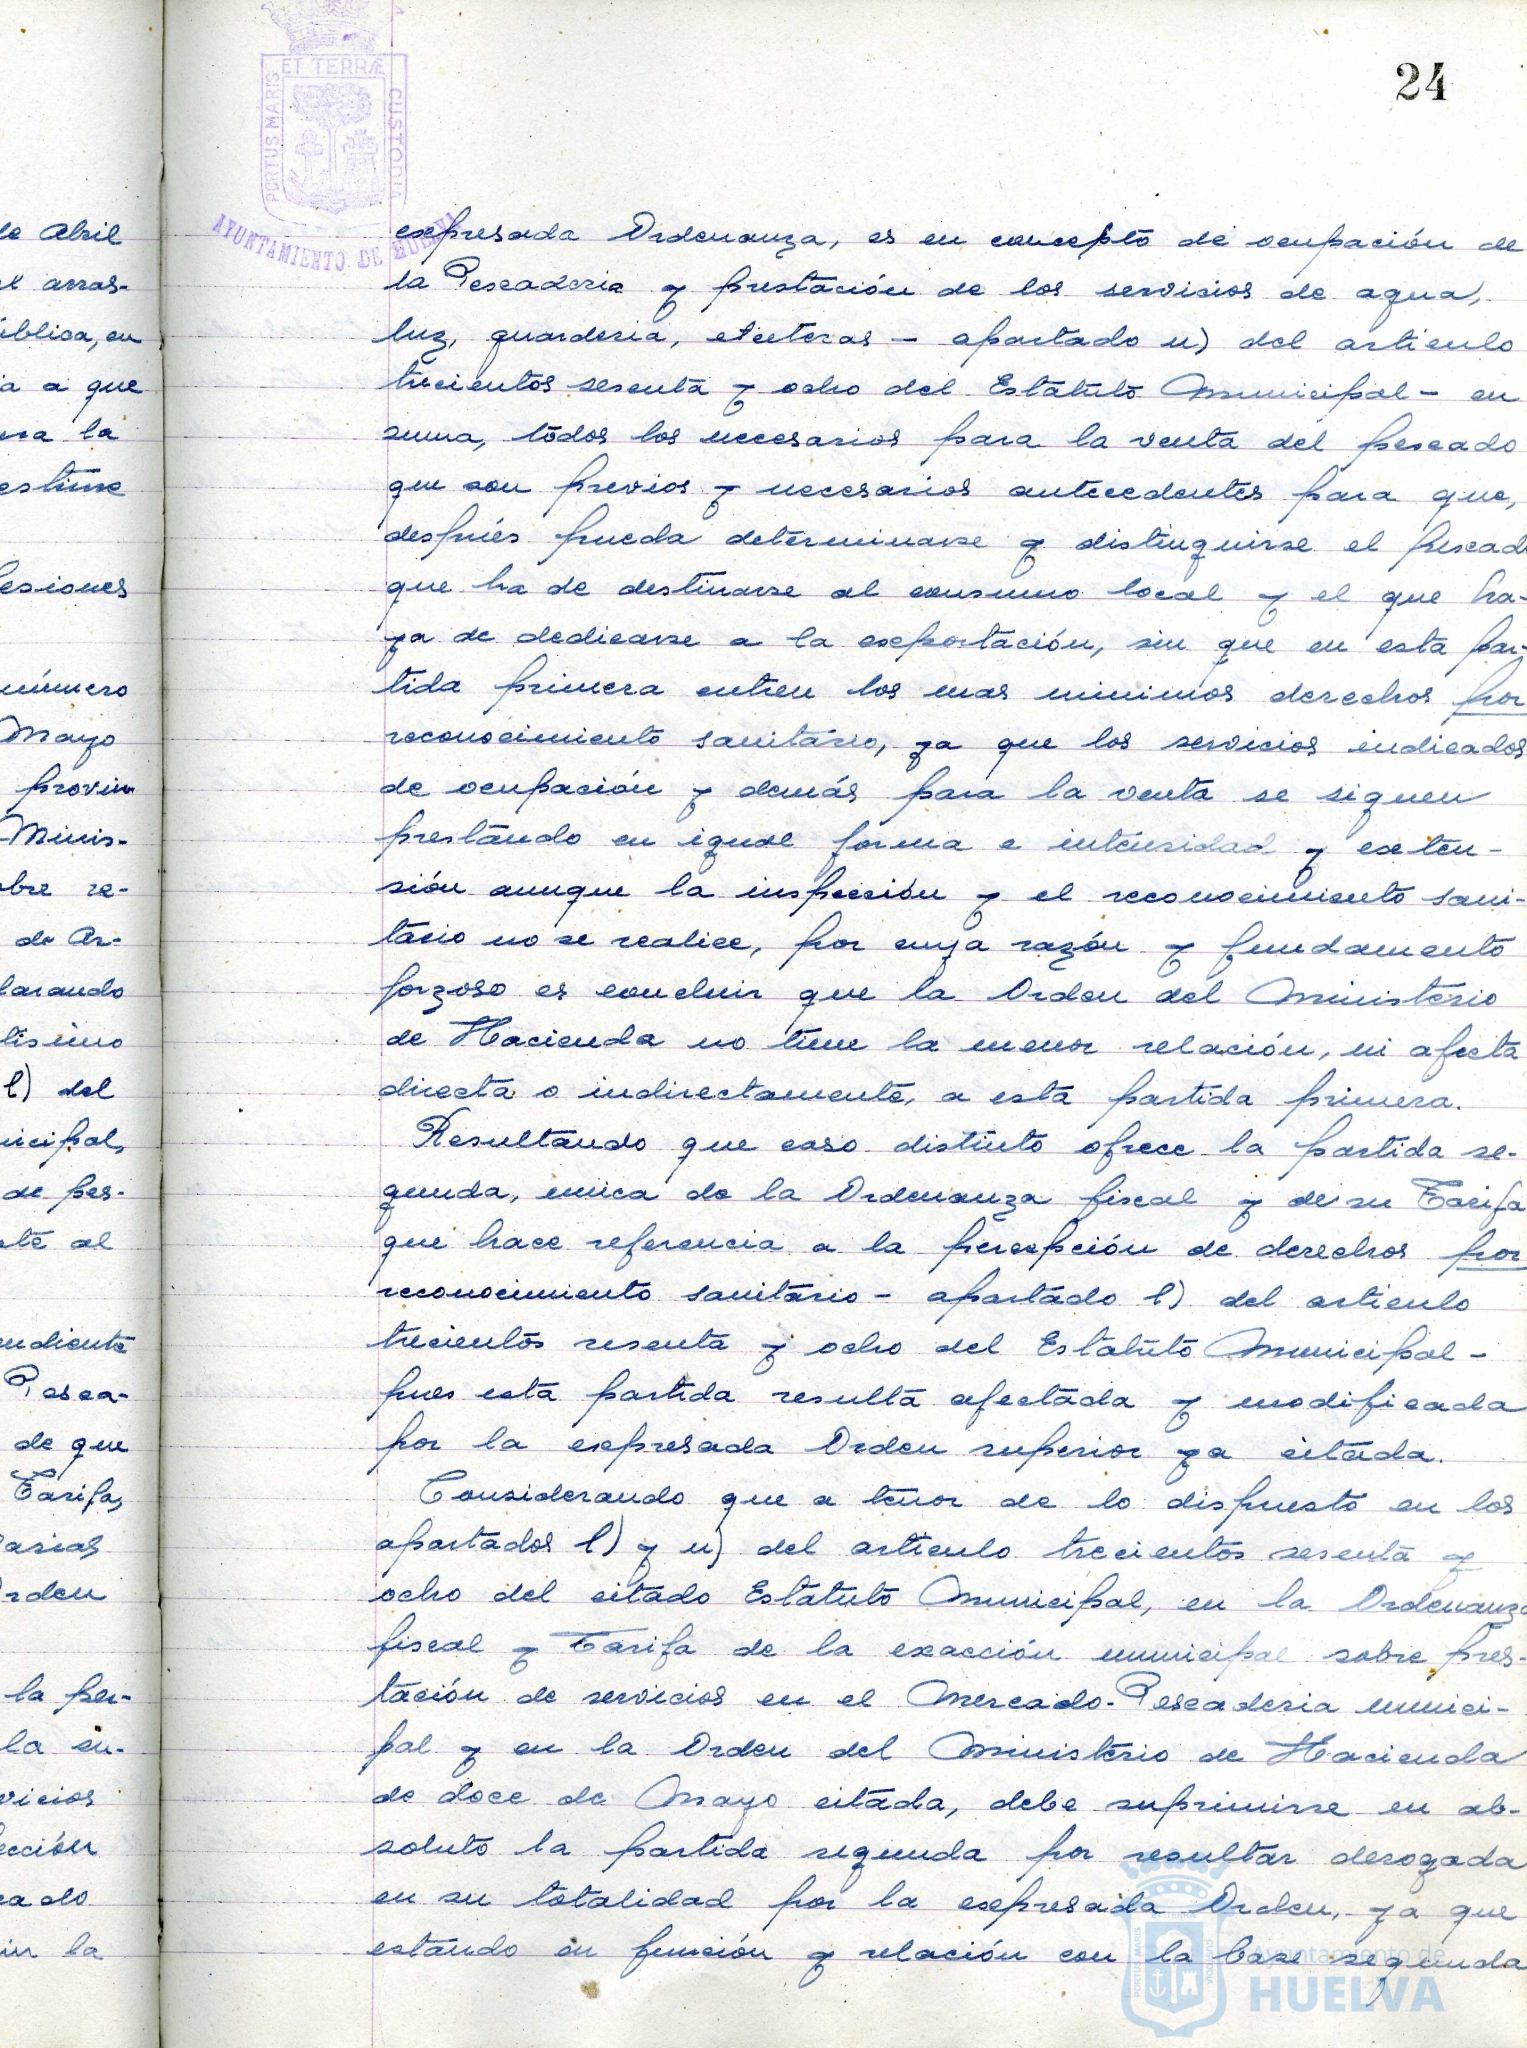 24
ET TERRÆ
PORTUS MARIS
CUSTODIA
AYUNTAMIENTO DE HUELVA
de Abril
arras-
ública, en
ia a que
la
estime
esiones
número
Mayo
provin
Minis-
obre re-
de Ar-
larando
tisimo
l) del
nicipal,
de pes-
al
endiente
Pesca-
de que
Tarifa,
arias
rden
la per-
la en-
vicios
ección
cado
la
expresada Ordenanza, es en concepto de ocupación de
la Pescaderia y prestación de los servicios de agua,
luz, guarderia, etceteras - apartado n) del articulo
trecientos sesenta y ocho del Estatuto Municipal - en
suma, todos los necesarios para la venta del pescado
que son previos y necesarios antecedentes para que,
después pueda determinarse y distinguirse el pescado
que ha de destinarse al consumo local y el que ha-
ya de dedicarse a la exportación, sin que en esta par-
tida primera entren los mas minimos derechos por
reconocimiento sanitario, ya que los servicios indicados
de ocupación y demás para la venta se siguen
prestando en igual forma e intensidad y exten-
sión aunque la inspección y el reconocimiento sani-
tario no se realice, por cuya razón y fundamento
forzoso es concluir que la Orden del Ministerio
de Hacienda no tiene la menor relación, ni afecta
directa o indirectamente, a esta partida primera.
Resultando que caso distinto ofrece la partida se-
gunda, unica de la Ordenanza fiscal y de su Tarifa
que hace referencia a la percepción de derechos por
reconocimiento sanitario - apartado l) del articulo
trecientos sesenta y ocho del Estatuto Municipal -
pues esta partida resulta afectada y modificada
por la expresada Orden superior ya citada.
Considerando que a tenor de lo dispuesto en los
apartados l) y n) del articulo trecientos sesenta y
ocho del citado Estatuto Municipal, en la Ordenanza
fiscal y Tarifa de la exacción municipal sobre pres-
tación de servicios en el Mercado-Pescaderia munici-
pal y en la Orden del Ministerio de Hacienda
de doce de Mayo citada, debe suprimirse en ab-
soluto la partida segunda por resultar derogada
en su totalidad por la expresada Orden, ya que
estando en función y relación con la base segunda
Ayuntamiento de
HUELVA